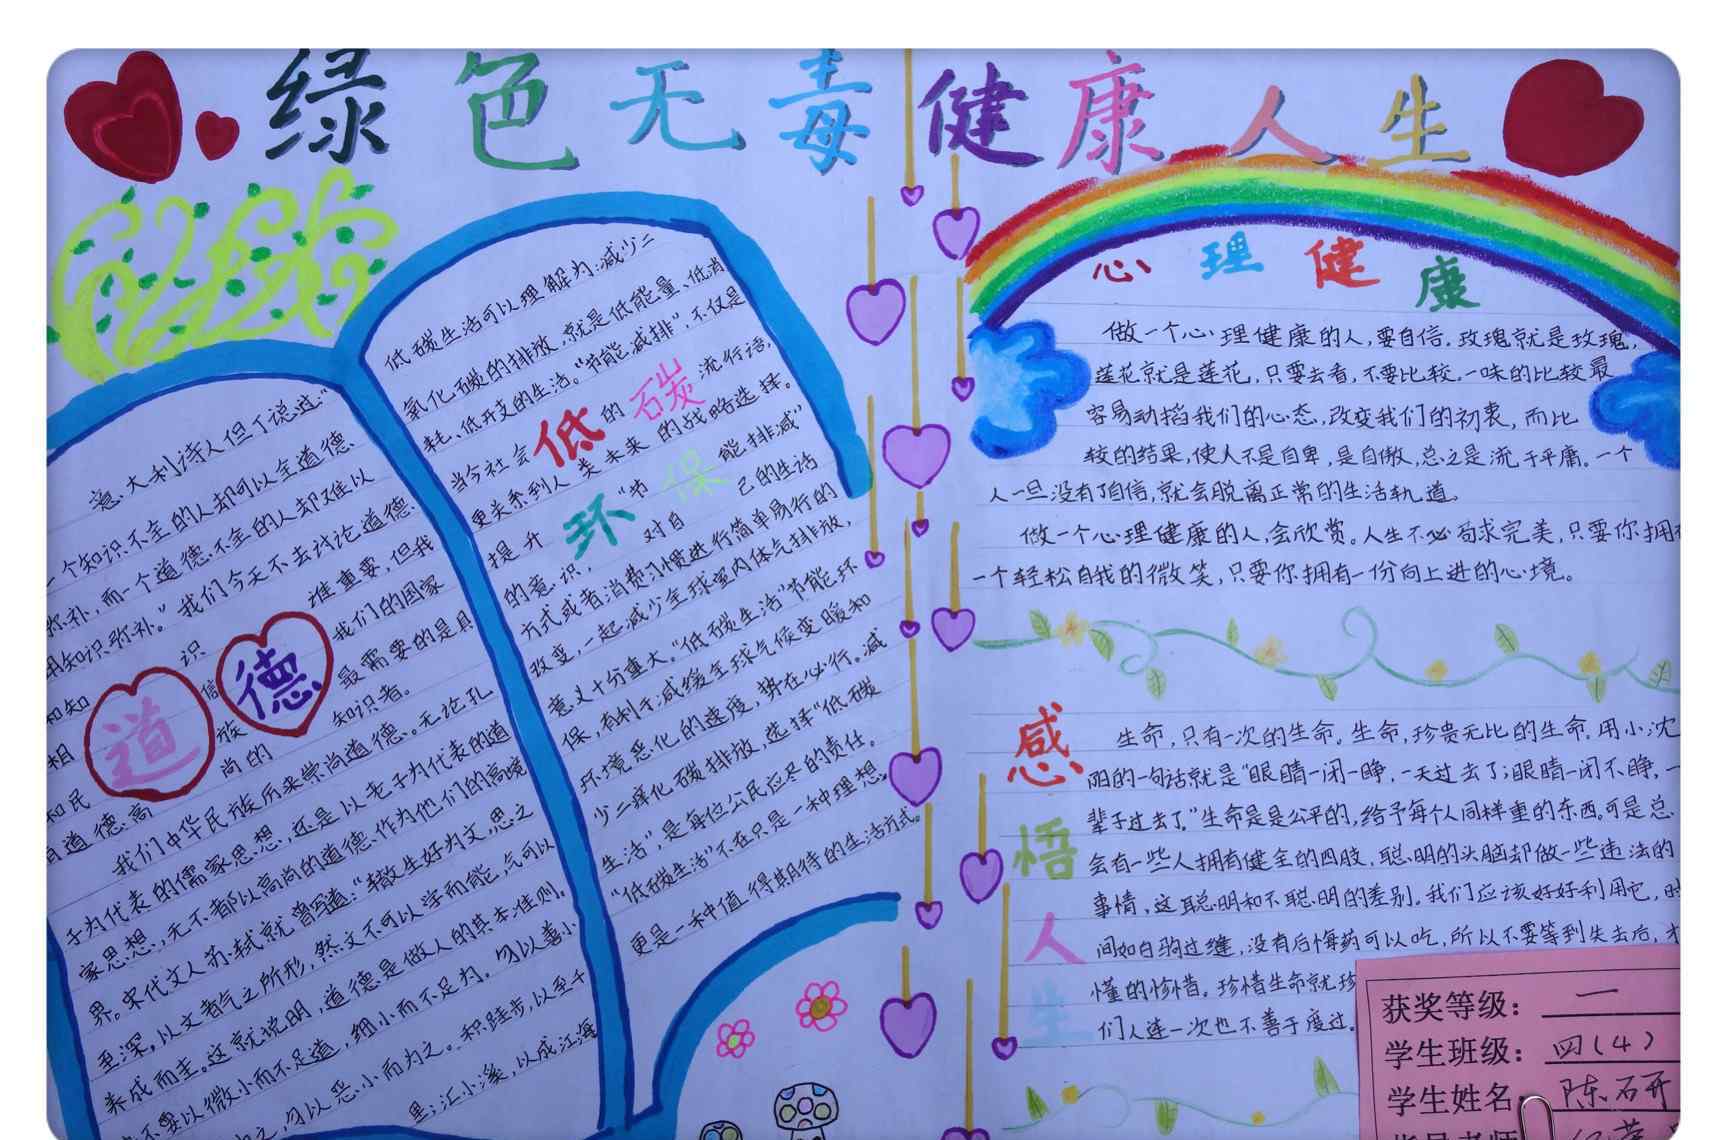 绿色无毒健康人生
意大利诗人但丁说过:"
一个知识不全的人却可以全道德、
弥补,而一个道德不全的人却难以
用知识弥补。"我们今天不去讨论道德、
和知识 谁重要,但我
相信 我们的国家
和民族 最需要的是具
有道德高尚的 知识者。
道德
我们中华民族历来崇尚道德。无论孔
子为代表的儒家思想,还是以老子为代表的道
家思想,无不都以高尚的道德作为他们的高境
界。宋代文人苏轼就曾写道:"辙生好为文思之
至深,以文者气之所形,然文不可以学而能,气可以
养成而主。这就说明,道德是做人的其本准则。
不要以微小而不足道,细小而不足为。勿以善小
之,勿以恶小而为之。积跬步,以至千
里;汇小溪,以成江海
低碳生活可以理解为:减少二
氧化碳的排放,就是低能量、低消
耗、低开支的生活。"节能减排",不仅是
当今社会 的 流行语,
更关系到人类未来 的战略选择。
提升 "节 能排减"
的意识, 对自 己的生活
低碳
环保
方式或者消费习惯进行简单易行的
改变,一起减少全球室内体气排放,
意义十分重大。"低碳生活"节能环
保,有利于减缓全球气候变暖和
环境恶化的速度,势在必行。减
少二痒化碳排放,选择"低碳
生活",是每位公民应尽的责任。
"低碳生活"不在只是一种理想,
更是一种值得期待的生活方式。
心理健康
做一个心理健康的人,要自信。玫瑰就是玫瑰,
莲花就是莲花,只要去看,不要比较。一味的比较最
容易动摇我们的心态,改变我们的初衷,而比
较的结果,使人不是自卑,是自傲,总之是流于平庸。一个
人一旦没有了自信,就会脱离正常的生活轨道。
做一个心理健康的人,会欣赏。人生不必苟求完美,只要你拥有
一个轻松自我的微笑,只要你拥有一份向上进的心境。
感悟人生
生命,只有一次的生命。生命,珍贵无比的生命。用小沈
阳的一句话就是"眼睛一闭一睁,一天过去了;眼睛一闭不睁,一
辈子过去了"生命是是公平的,给予每个人同样重的东西。可是总
会有一些人拥有健全的四肢,聪明的头脑却做一些违法的
事情,这聪明和不聪明的差别。我们应该好好利用它,时
间如白驹过缝,没有后悔药可以吃,所以不要等到失去后,才
懂的惨惜。珍惜生命就珍
们人连一次也不善于度过。
获奖等级: 一
学生班级: 四(4)
学生姓名: 陈石开